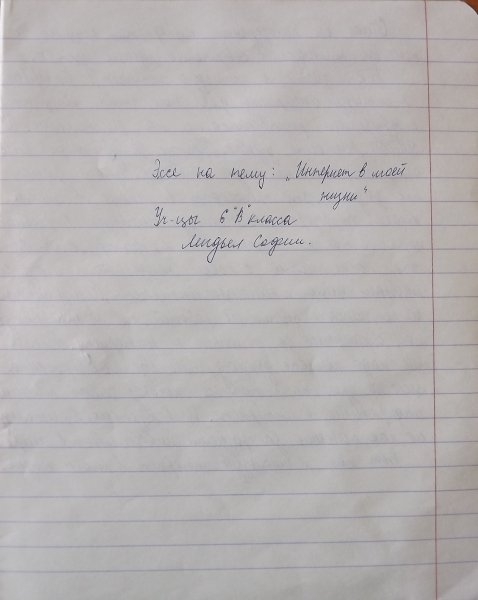 Эссе на тему: „Интернет в моей
жизни“
Уч-цы 6 "В" класса
Софии.